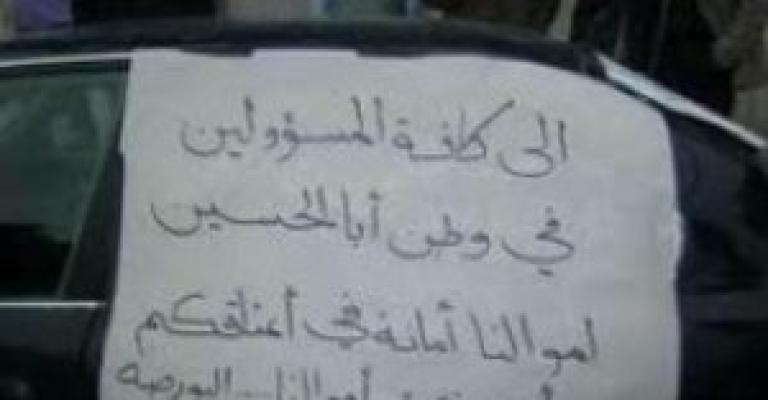 الى كافة المسؤولين
في وطن أبا الحسين
اموالنا أمانة في أعناقكم
أموالنا البورصه